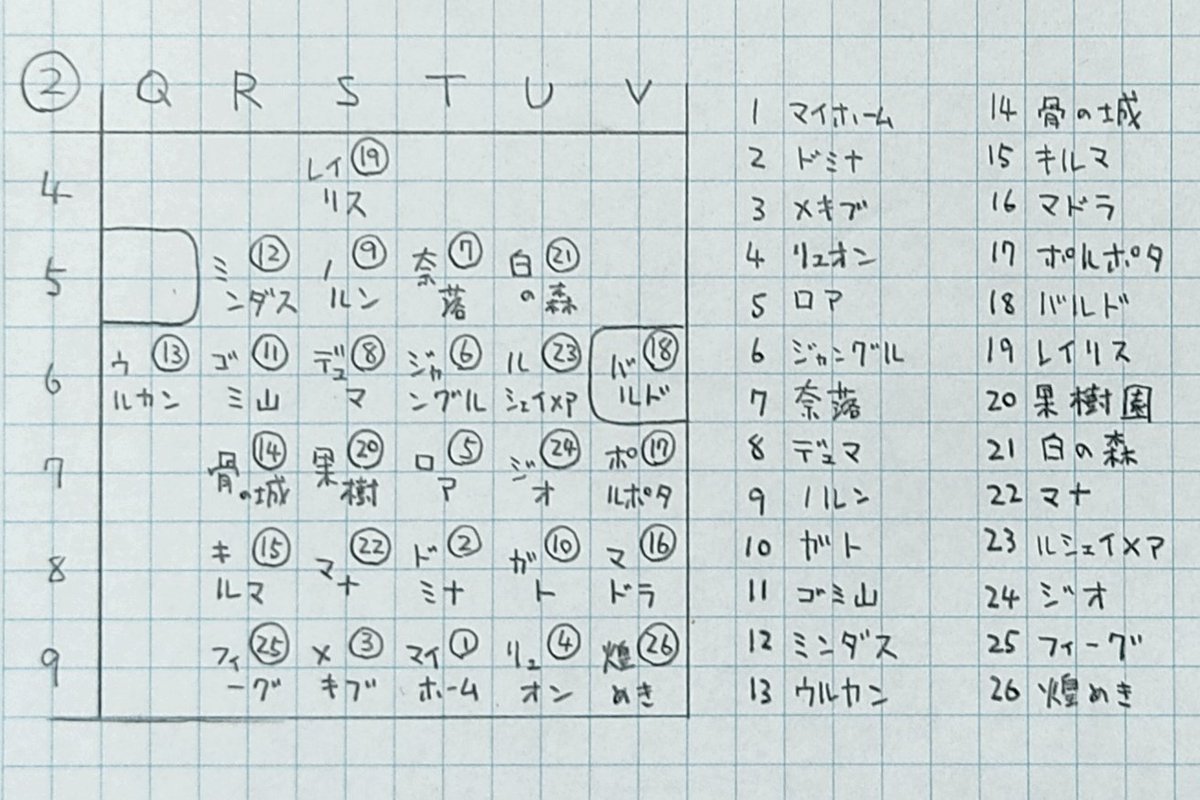 ② Q R S T U V
4 レイリス⑲
5 ミンダス⑫ ノルン⑨ 奈落⑦ 白の森㉑
6 ウルカン⑬ ゴミ山⑪ デュマ⑧ ジャングル⑥ ルシェイメア㉓ バルド⑱
7 骨の城⑭ 果樹⑳ ロア⑤ ジオ㉔ ポルポタ⑰
8 キルマ⑮ マナ㉒ ドミナ② ガト⑩ マドラ⑯
9 フィーグ㉕ メキブ③ マイホーム① リュオン④ 煌めき㉖
1 マイホーム
2 ドミナ
3 メキブ
4 リュオン
5 ロア
6 ジャングル
7 奈落
8 デュマ
9 ノルン
10 ガト
11 ゴミ山
12 ミンダス
13 ウルカン
14 骨の城
15 キルマ
16 マドラ
17 ポルポタ
18 バルド
19 レイリス
20 果樹園
21 白の森
22 マナ
23 ルシェイメア
24 ジオ
25 フィーグ
26 煌めき